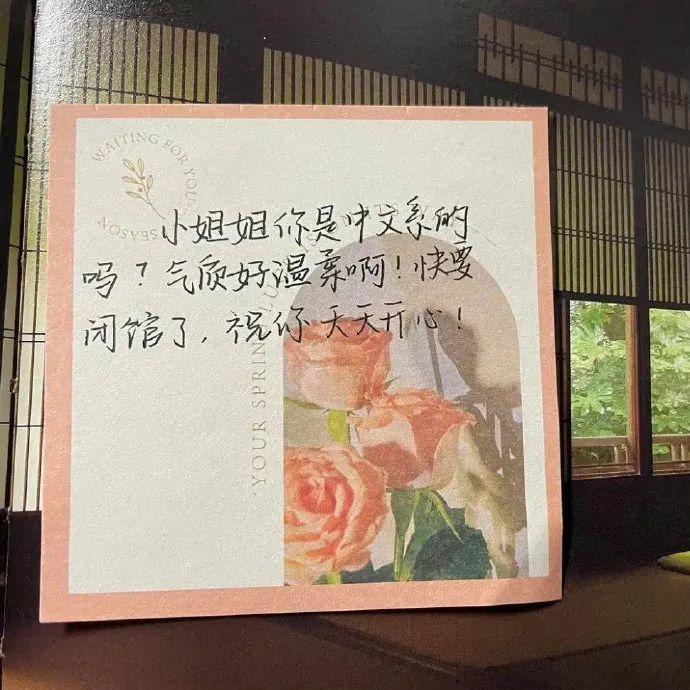 WAITING FOR YOU
SEASON
小姐姐你是中文系的
吗？气质好温柔啊！快要
闭馆了，祝你天天开心！
YOUR SPRIN